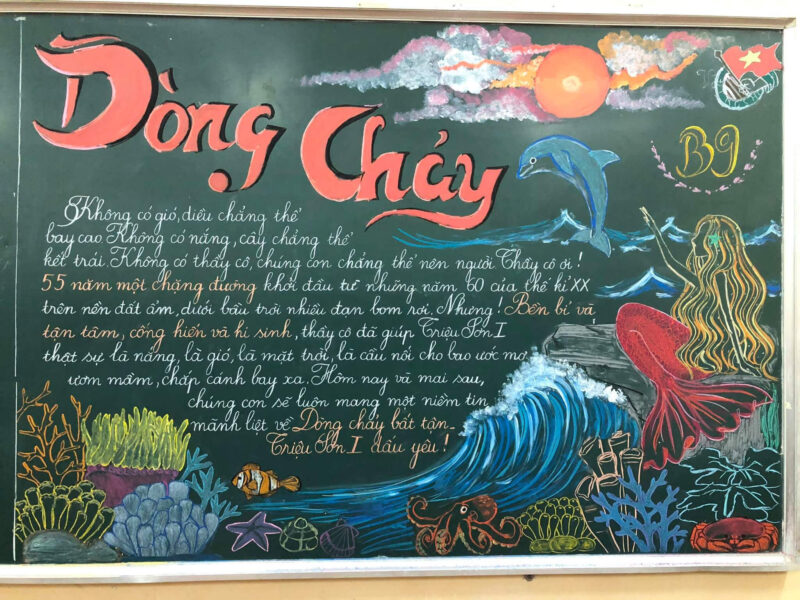 Dòng Chảy
B9
Không có gió, diều chẳng thể
bay cao Không có nắng, cây chẳng thể
kết trái. Không có thầy cô, chúng con chẳng thể nên người. Thầy cô ơi!
55 năm một chặng đường khởi đầu từ những năm 60 của thế kỉ XX
trên nền đất ấm, dưới bầu trời nhiều đạn bom rơi. Nhưng! Bền bỉ và
tận tâm, cống hiến và hi sinh, thầy cô đã giúp Triệu Sơn I
thật sự là nắng, là gió, là mặt trời, là cầu nối cho bao ước mơ
ươm mầm, chắp cánh bay xa. Hôm nay và mai sau,
chúng con sẽ luôn mang một niềm tin
mãnh liệt về Dòng chảy bất tận_
Triệu Sơn I dấu yêu!